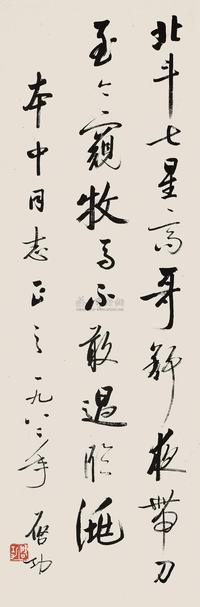 北斗七星高哥舒夜帶刀
至今窺牧馬不敢過臨洮
本中同志正之一九八二年 啓功